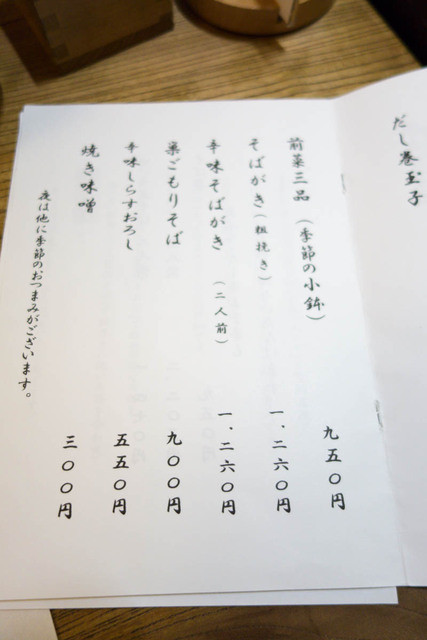 だし巻玉子
前菜三品（季節の小鉢）
九五〇円
そばがき（粗挽き）
一、二六〇円
辛味そばがき（二人前）
一、二六〇円
巣ごもりそば
九〇〇円
辛味しらすおろし
五五〇円
焼き味噌
三〇〇円
夜は他に季節のおつまみがございます。